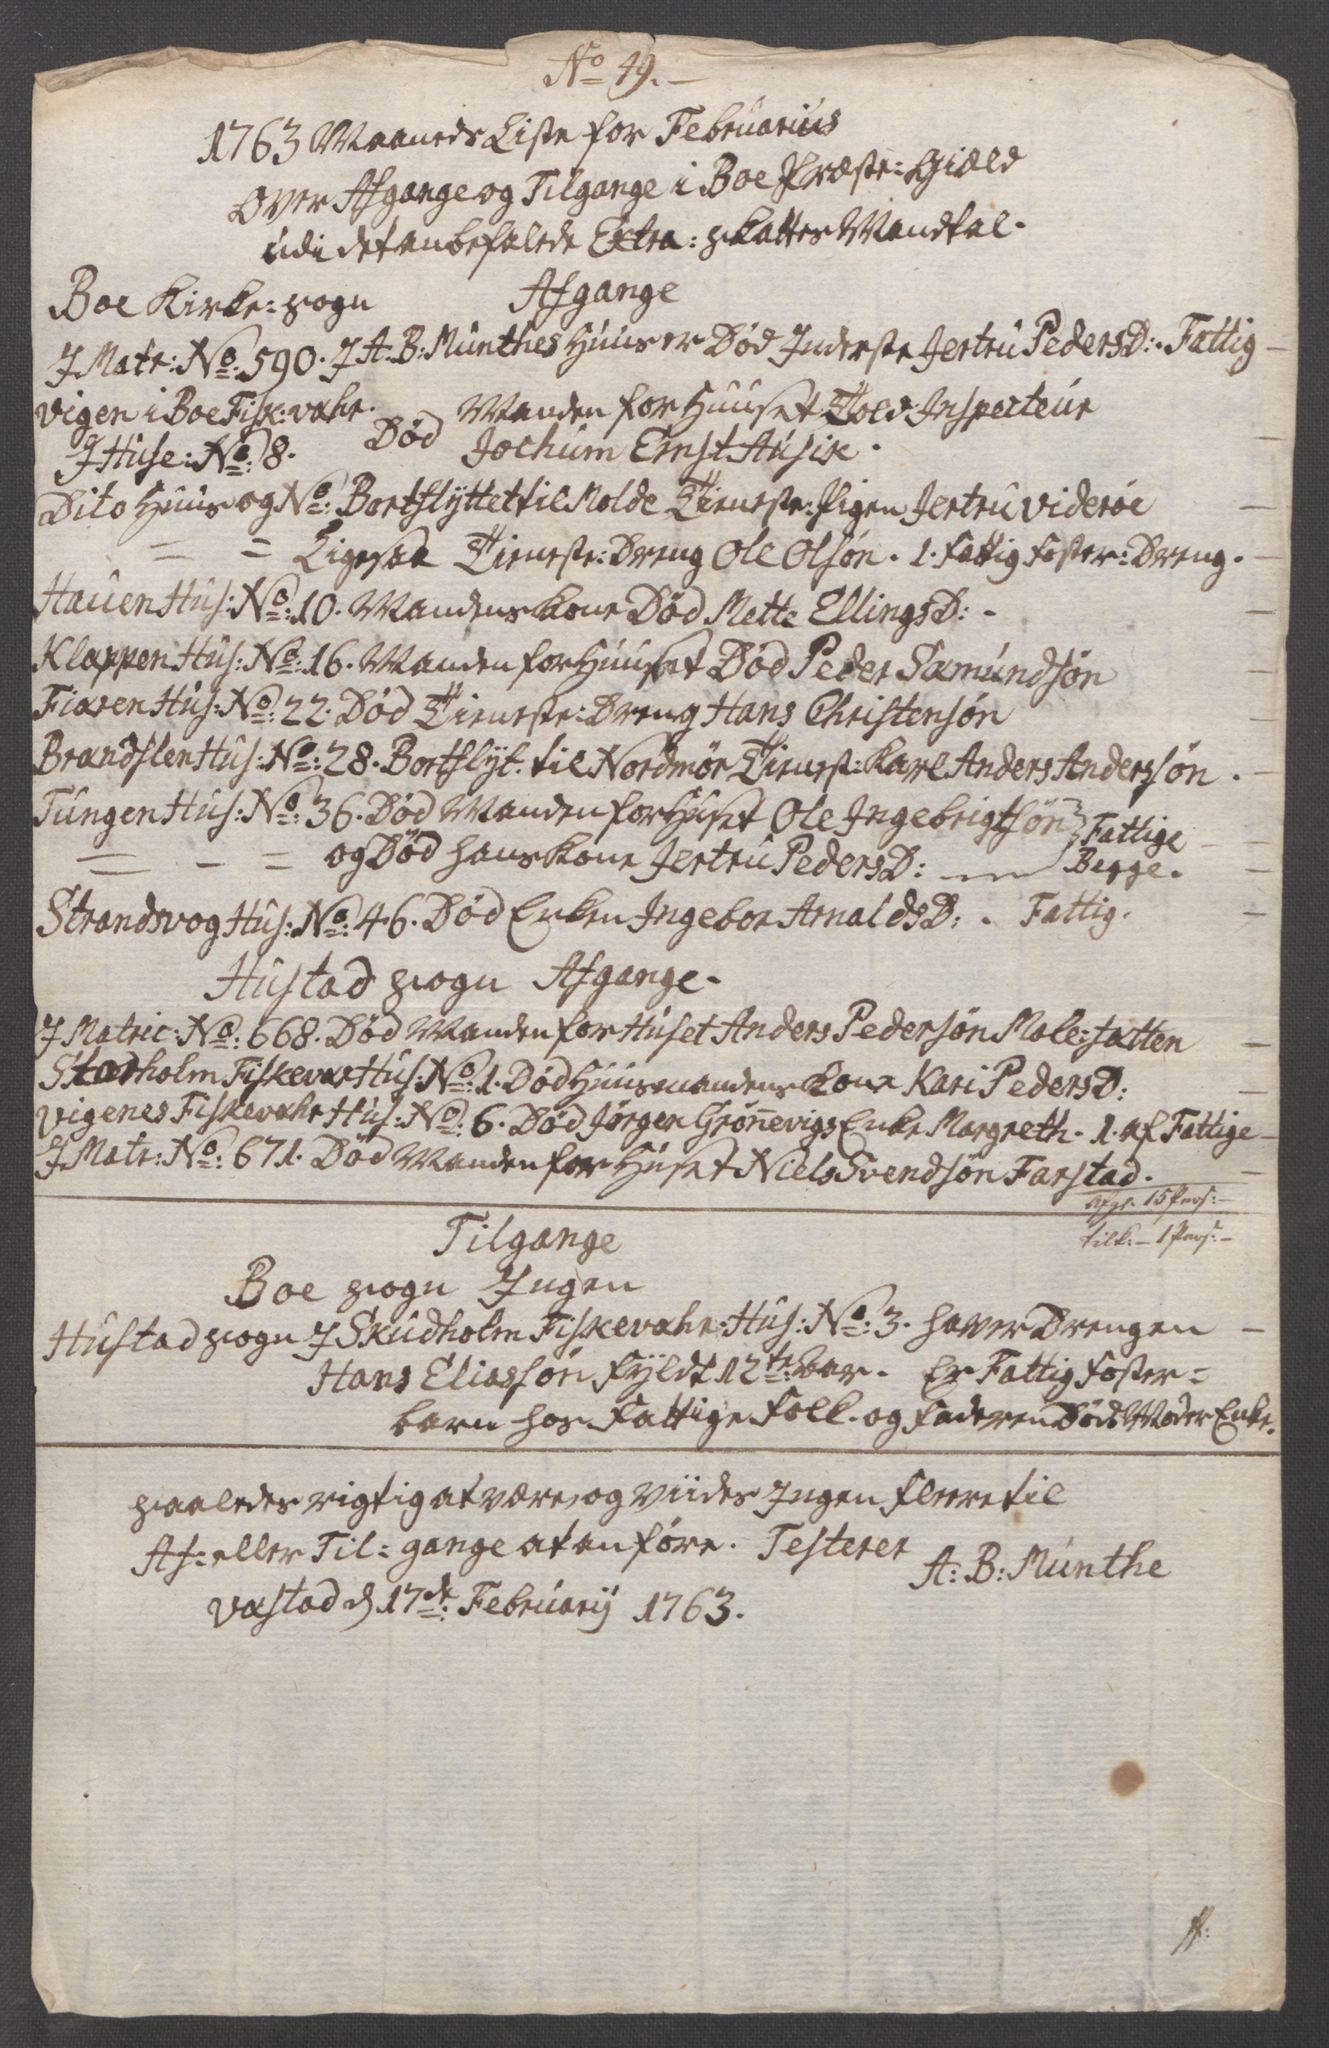 No 49.
1763 Maaneds Liste for Februarius
over Afgange og Tilgange i Boe Præste: Giæld
udi det anbefalede Extra: skattes Mandtal.
Boe Kirke: sogn Afgange
J Matr: No: 590. J A. B: Munthes Huus er Død Inderste Jertru PedersD: Fattig
vigen i Boe Fisk: vahr. Manden for Huuset Told: Inspecteur
J Huse: No: 8. Død Jochum Ernst Ausig.
Dito Huus og No: Bortflyttet til Molde Tieneste: Pigen Jertru Viderøe
= = Ligesaa Tieneste: Dreng Ole Olsøn. 1. fattig foster: Dreng.
Hauen Hus: No: 10. Mandens Kone Død Mette EllingsD:
Klappen Hus: No: 16. Manden for Huuset Død Peder Samundsøn
Fiaren Hus: No: 22. Død Tieneste: Dreng Hans Christensøn
Brandslen Hus: No: 28. Bortflyt. til Nordmør Tienest: Karl Anders Anderssøn.
Tungen Hus: No: 36. Død Manden for Huset Ole Ingebrigtsøn } Fattige
= - = og Død hans Kone Jertru PedersD: Begge.
Strandsvog Hus: No: 46. Død Enken Ingebor ArnaldsD: . Fattig.
Hustad sogn Afgange.
J Matric: No: 668. Død Manden for Huset Anders Pedersøn Male: satten
Skudholm Fiskevar Hus: No: 1. Død Huusmandens Kone Kari PedersD:
vigenes Fiskevahr Hus: No: 6. Død Jørgen Grönnevigs Enke Margreth. 1. af Fattige
J Matr: No: 671. Død Manden for Huset Niels Svendsøn Farstad.
afg: 15 Pers:
tilk: 1 Pers:
Tilgange
Boe sogn Ingen
Hustad sogn J Skudholm Fiskevahr: Hus: No: 3. haver Drengen
Hans Eliassøn fyldt 12te aar. Er Fattig Foster=
barn hos Fattige Folk. og Faderen Død: Moder Enke.
saaledes rigtig at være, og viides Ingen fleere til
Af= eller Til= gange at anføre. Testerer
A: B: Munthe
vastad d 17de: February 1763.